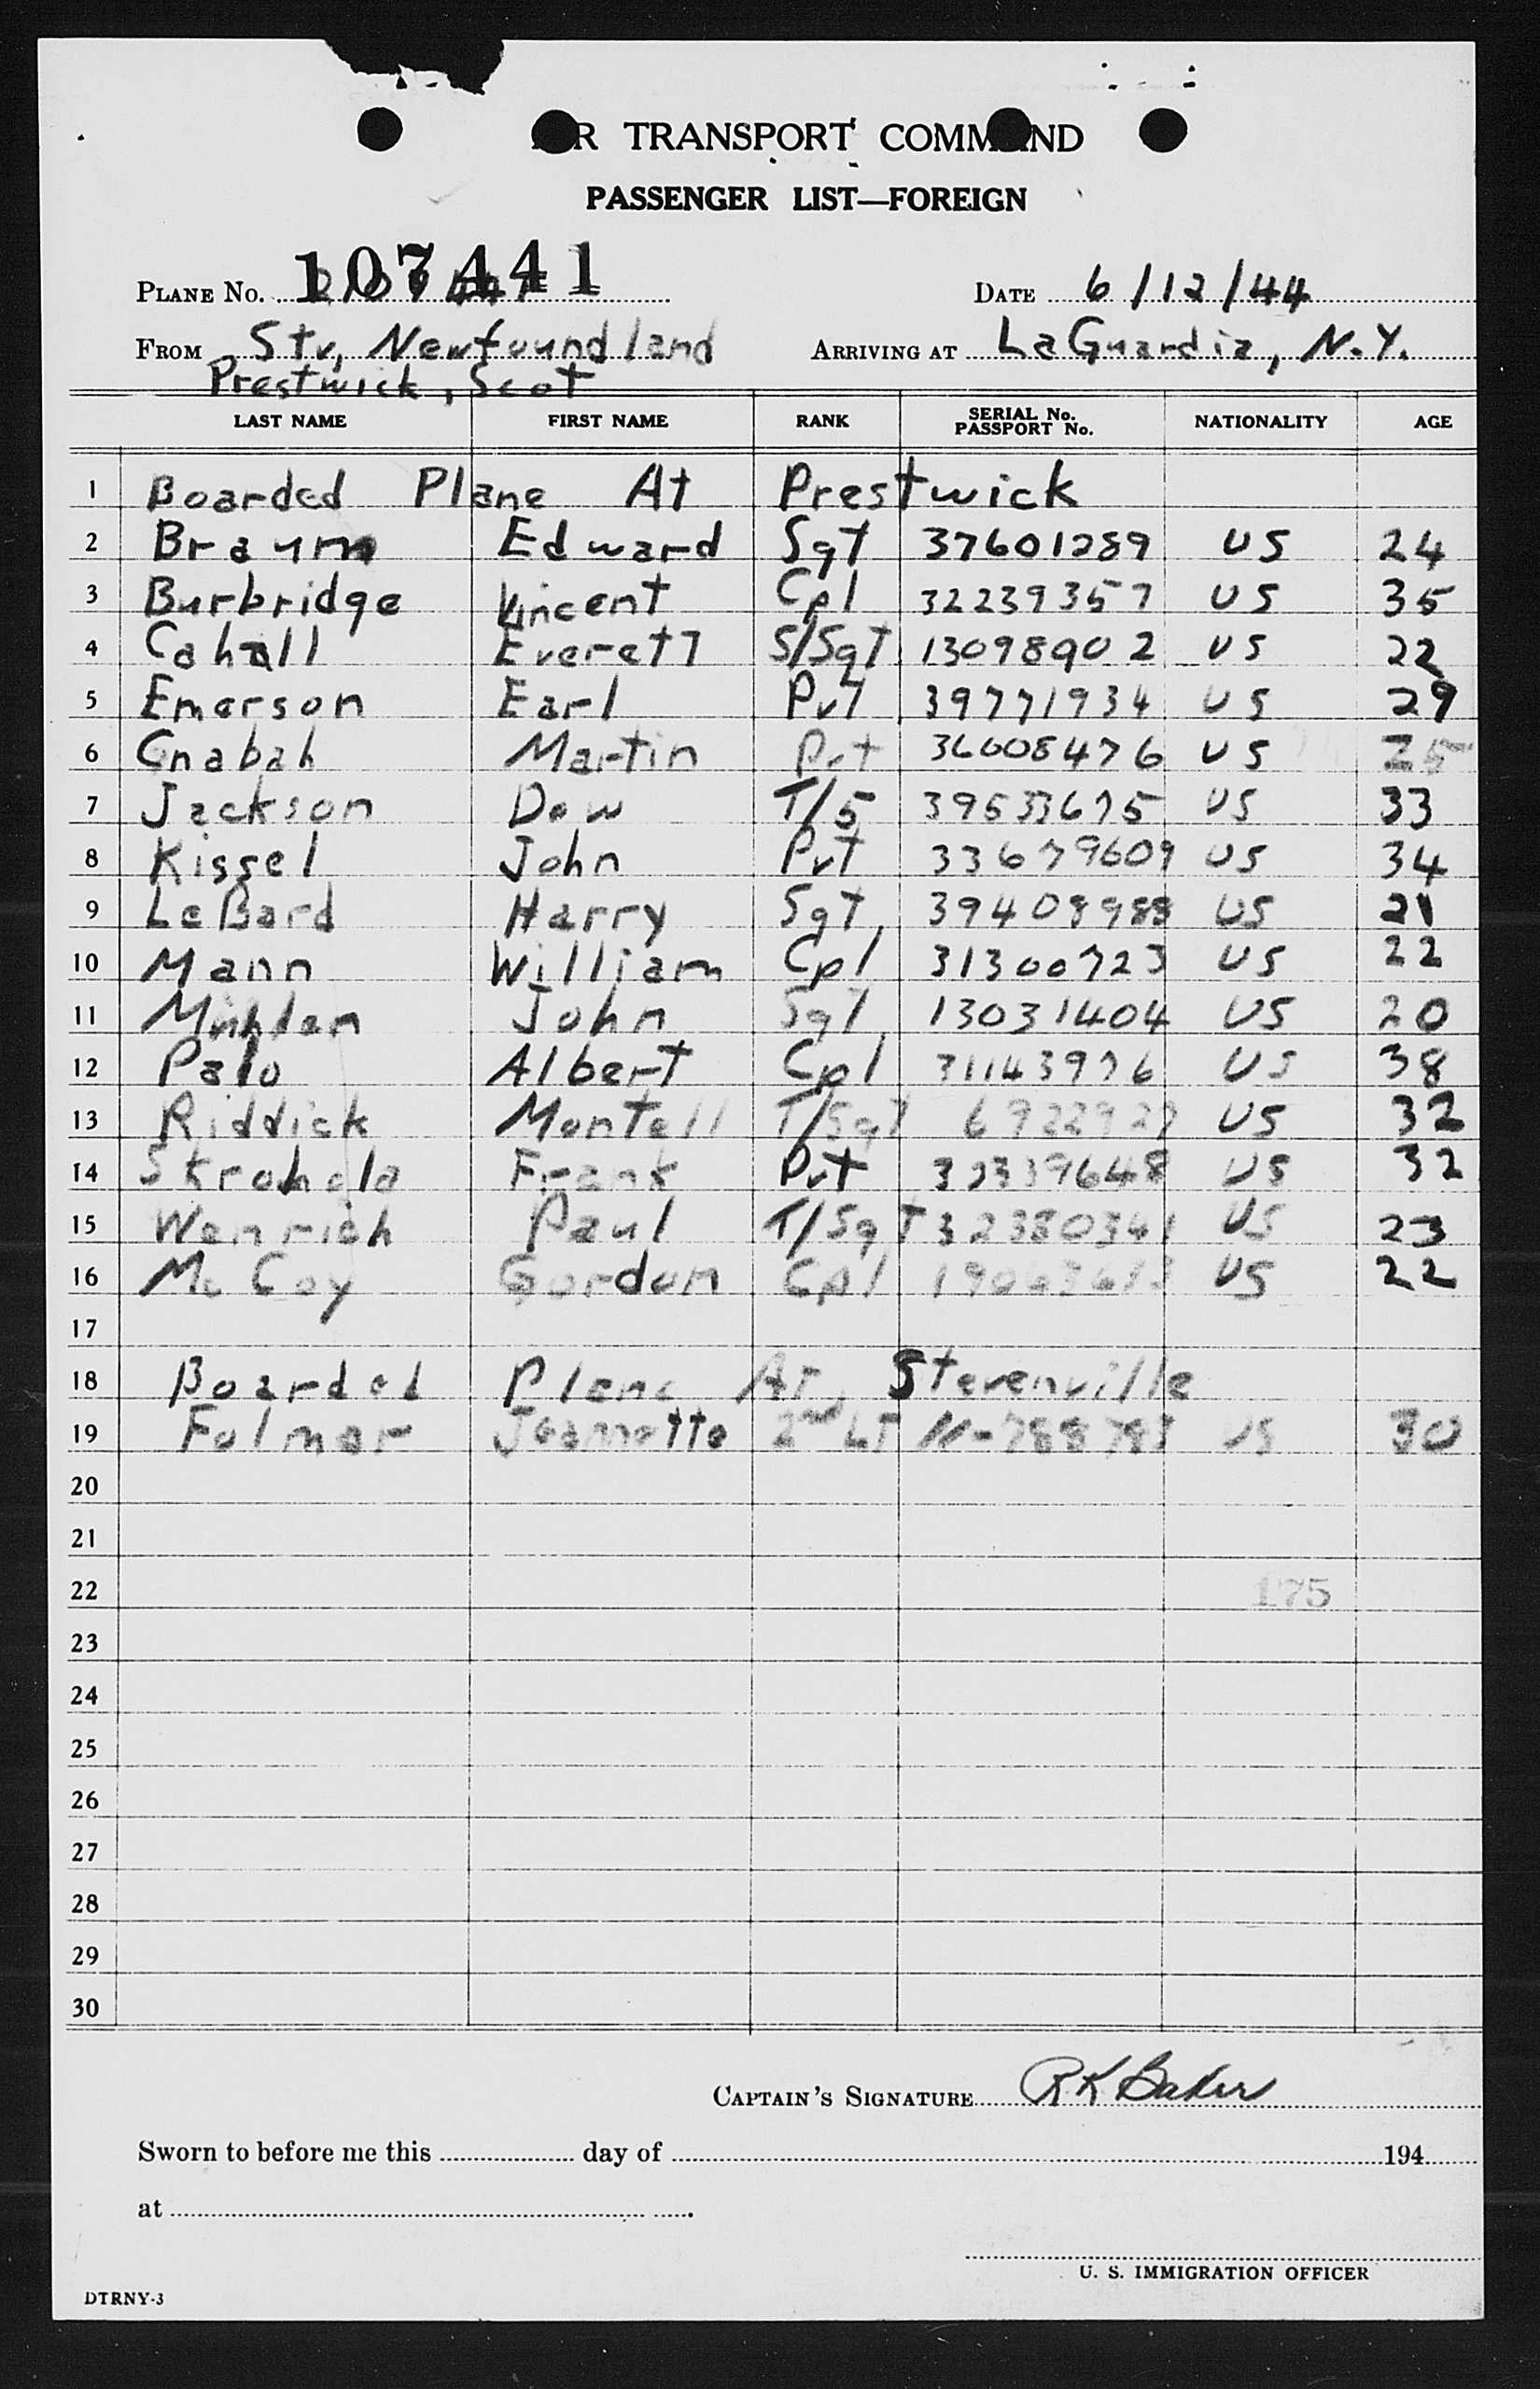 AIR TRANSPORT COMMAND
PASSENGER LIST—FOREIGN
PLANE No. 107441
DATE 6/12/44
FROM Stv, Newfoundland
ARRIVING AT LaGuardia, N.Y.
Prestwick, Scot
LAST NAME FIRST NAME RANK SERIAL No. PASSPORT No. NATIONALITY AGE
1 Boarded Plane At Prestwick
2 Braun Edward Sgt 37601289 US 24
3 Burbridge Vincent Cpl 32239357 US 35
4 Cahall Everett S/Sgt 13098902 US 22
5 Emerson Earl Pvt 39771934 US 29
6 Gnabah Martin Pvt 36008476 US 25
7 Jackson Dow T/5 39533675 US 33
8 Kissel John Pvt 33679609 US 34
9 LeBard Harry Sgt 39408988 US 21
10 Mann William Cpl 31300723 US 22
11 John Sgt 13031404 US 20
12 Palo Albert Cpl 31143976 US 38
13 Riddick Montell T/Sgt 6922927 US 32
14 Frank Pvt 32339648 US 32
15 Wenrich Paul T/Sgt 32380341 US 23
16 McCoy Gordon Cpl US 22
17
18 Boarded Plane At Stevenville
19 Folmar Jeannette 2nd LT N-788783 US 30
20
21
22 175
23
24
25
26
27
28
29
30
CAPTAIN'S SIGNATURE RK Baker
Sworn to before me this day of 194
at
U. S. IMMIGRATION OFFICER
DTRNY-3